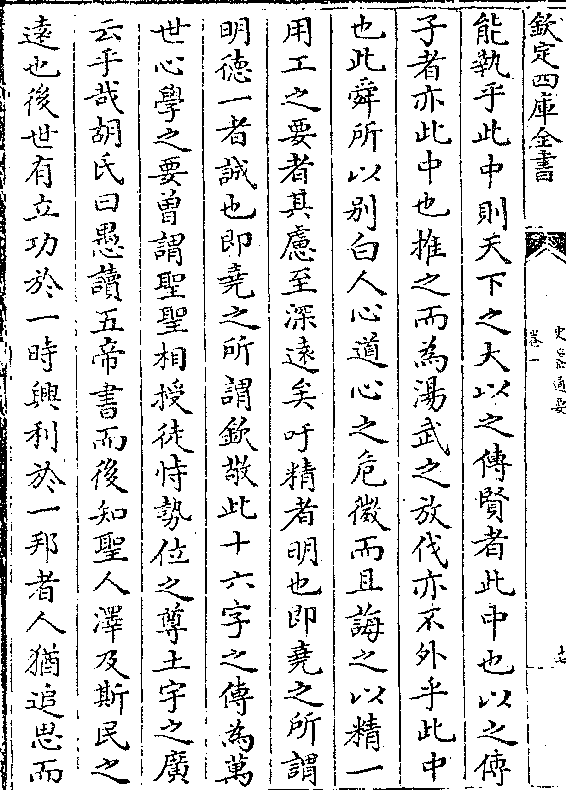 欽定四庫全書
史纂通要
卷一
十七
能執乎此中則天下之大以之傳賢者此中也以之傳
子者亦此中也推之而為湯武之放伐亦不外乎此中
也此舜所以别白人心道心之危微而且誨之以精一
用工之要者其慮至深遠矣吁精者明也即堯之所謂
明徳一者誠也即堯之所謂欽敬此十六字之傳為萬
世心學之要曽謂聖聖相授徒恃勢位之尊土宇之廣
云乎哉胡氏曰愚讀五帝書而後知聖人澤及斯民之
逺也後世有立功於一時興利於一邦者人猶追思而